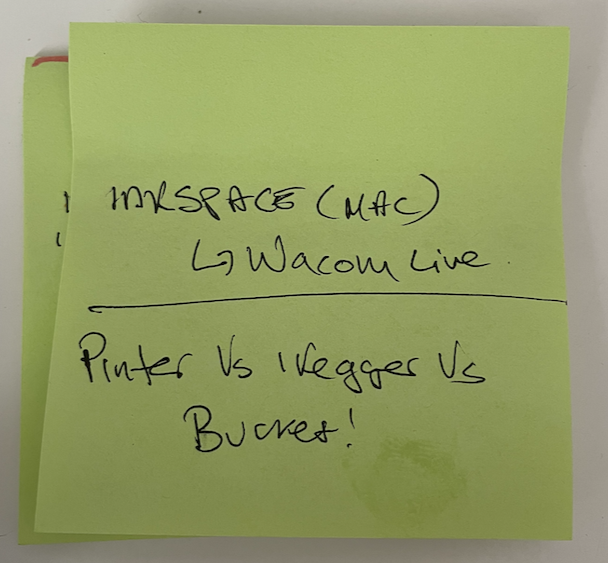 INKSPACE (MAC)
↳ Wacom Live
Pinter Vs iKegger Vs
Bucket!